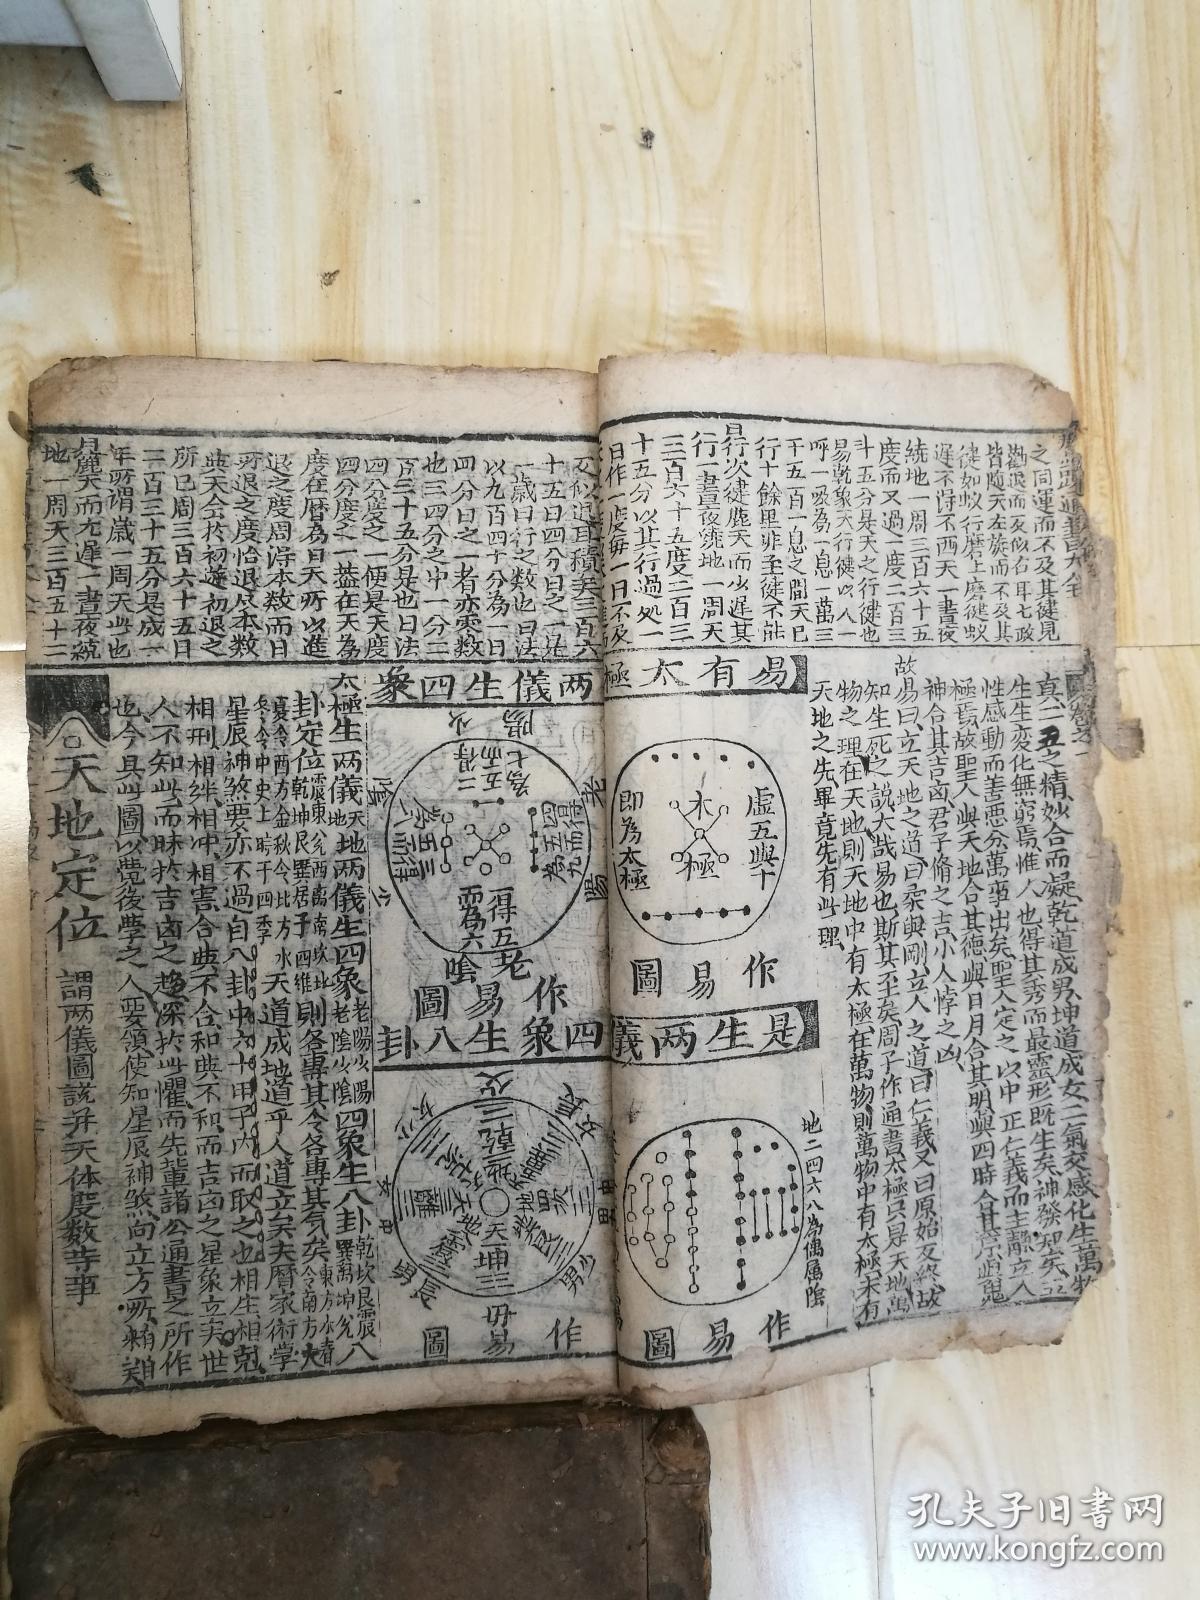 之同運而不及其健見
皆隨天左旋而不及其
徤如蚁行磨上磨徤蚁
遲不得不西天一晝夜
統地一周三百六十五
度而又過一度二百三
斗五分是天之行徤也
易乾象天行徤以八一
呼一吸為一息一萬三
千五百一息之間天已
行十餘里非至徤不能
日行次徤麗天而少遲其
行一晝夜繞地一周天
三百六十五度二百三
十五分以其行過処一
日作一度每一日不及
十五日四分日之一是
一歲日行之数也日法
以九百四十分為一日
四分日之一者亦零数
也三四分之中一分二
百三十五分是也日法
四分度之一便是天度
四分度之一蓋在天為
度在暦為日天所以進
退之度周得本数而日
所退之度恰退尽本数
與天会於初進初退之
所巳周三百六十五日
二百三十五分是成一
年所謂歲一周天此也
月麗天而尤遲一晝夜繞
地一周天三百五十二
真二五之精妙合而凝乾道成男坤道成女二氣交感化生萬物
生生変化無窮焉惟人也得其秀而最靈形既生矣神發知矣五
性感動而善悪分萬事出矣聖人定之以中正仁義而主靜立人
極焉故聖人與天地合其德與日月合其明與四時合其序與鬼
神合其吉凶君子脩之吉小人悖之凶
故易曰立天地之道曰柔與剛立人之道曰仁義又曰原始反終故
知生死之說大哉易也斯其至矣周子作通書太極只是天地萬
物之理在天地則天地中有太極在萬物則萬物中有太極未有
天地之先畢竟先有此理
易有太極
虛五與十
木極
即為太極
作易圖
是生两儀
地二四六八為偶属陰
作易圖
两儀生四象
老陽
少陽
老陰
少陰
一得五而為六
作易圖
四象生八卦
乾三
天
坤三
長女
少女
中女
長男
中男
少男
作易圖
太極生两儀天地两儀生四象老陽少陽老陰少陰四象生八卦乾坎艮震巽离坤兑八
卦定位震東兑西离南坎北乾坤艮巽居于四維則各專其令各專其氣矣
夏令西方金秋令北方水冬令中央土旺于四季天道成地道平人道立矣夫暦家術学
星辰神煞要亦不過自八卦中六十甲子内而取之也相生相剋
相刑相絆相冲相害合與不合和與不和而吉凶之星象立矣世
人不知此而昧於吉凶之趨深於此懼而先輩諸公通書之所作
也今具此圖以覺後學之人要領使知星辰神煞向立方所有自矣
天地定位
謂两儀圖說并天体度数等事
孔夫子旧书网
www.kongfz.com